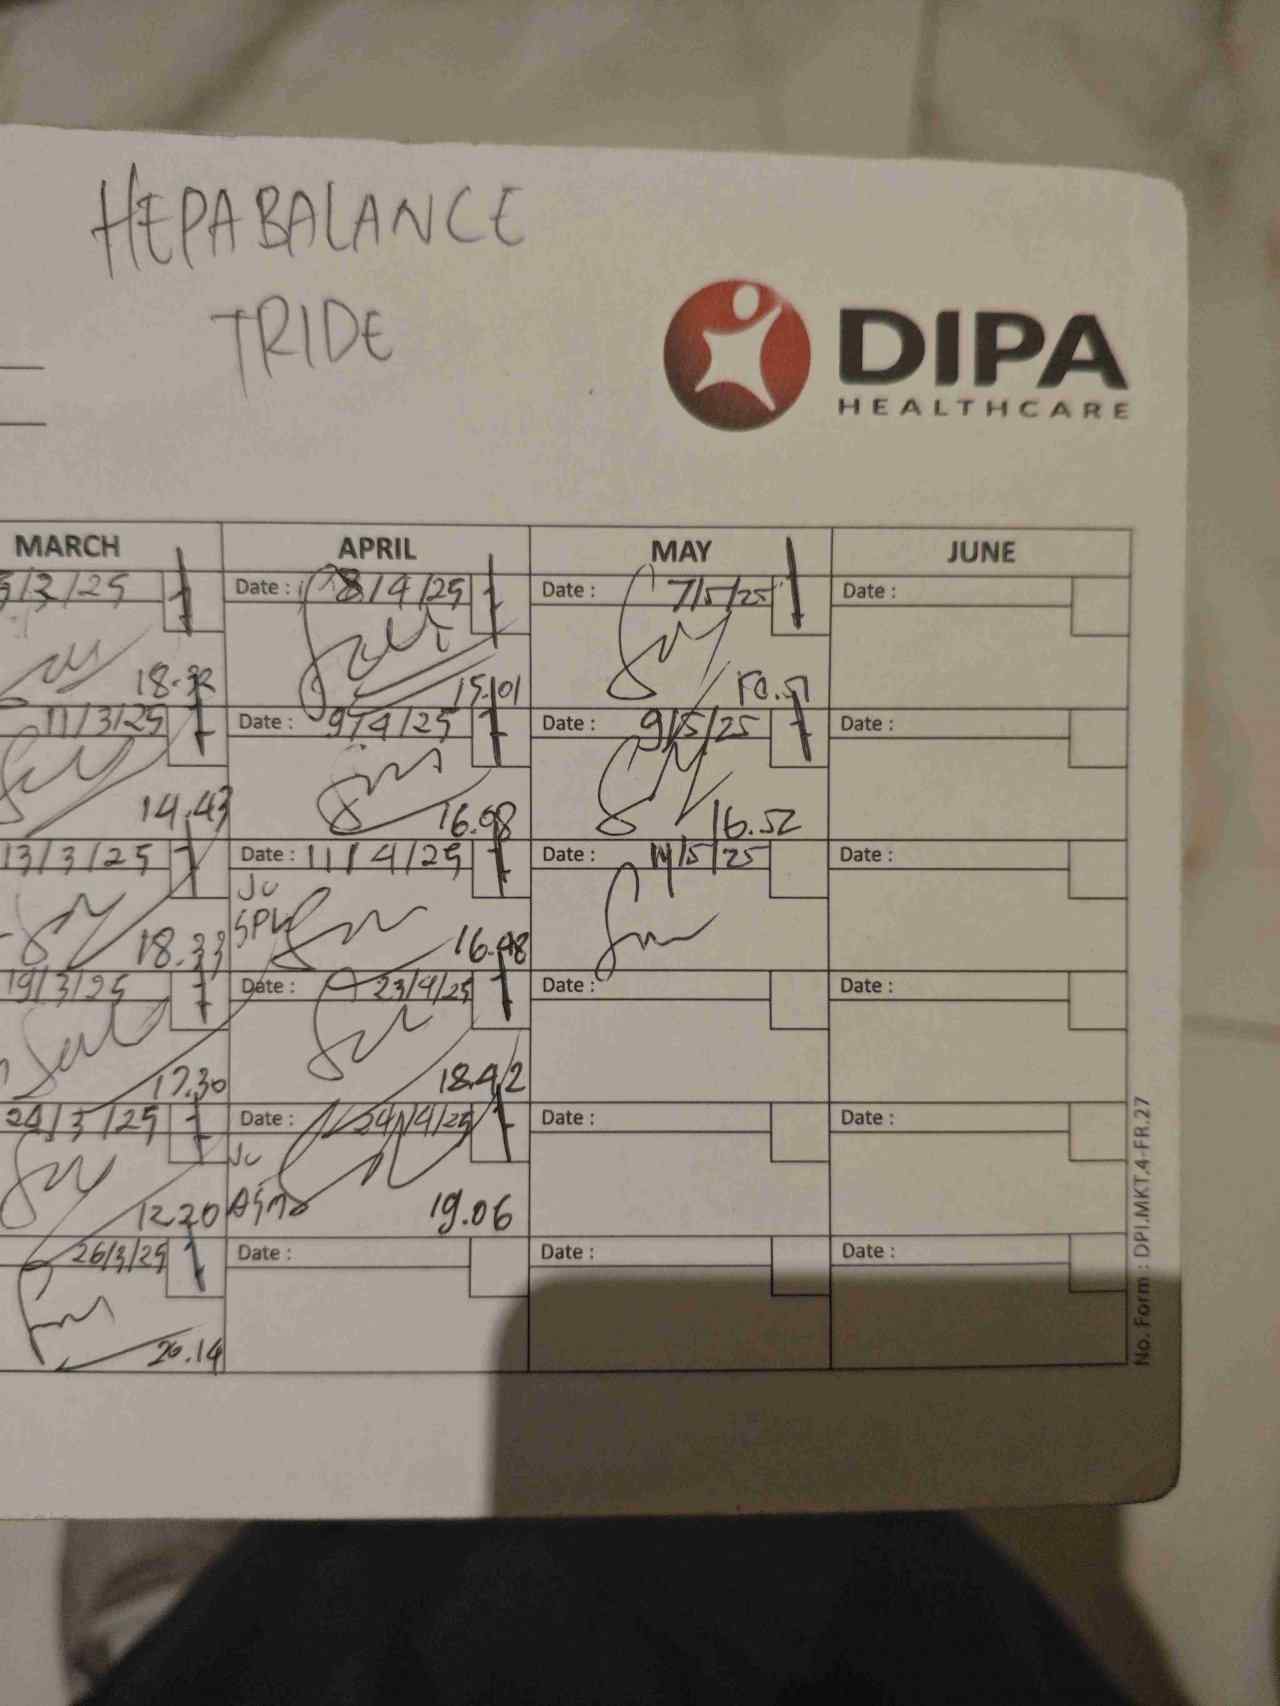 HEPABALANCE
TRIDE
DIPA
HEALTHCARE
MARCH APRIL MAY JUNE
/3/25 Date : 8/4/25 Date : 7/5/25 Date :
18.32 15.01
11/3/25 Date : 9/4/25 Date : 9/5/25 Date :
14.43 16.08 16.52
13/3/25 Date : 11/4/25 Date : 14/5/25 Date :
JC
SPV
18.33 16.48
19/3/25 Date : 23/4/25 Date : Date :
17.30 18.42
24/3/25 Date : 24/4/25 Date : Date :
JC
12.20 19.06
26/3/25 Date : Date : Date :
20.14
No. Form : DPI.MKT.4-FR.27